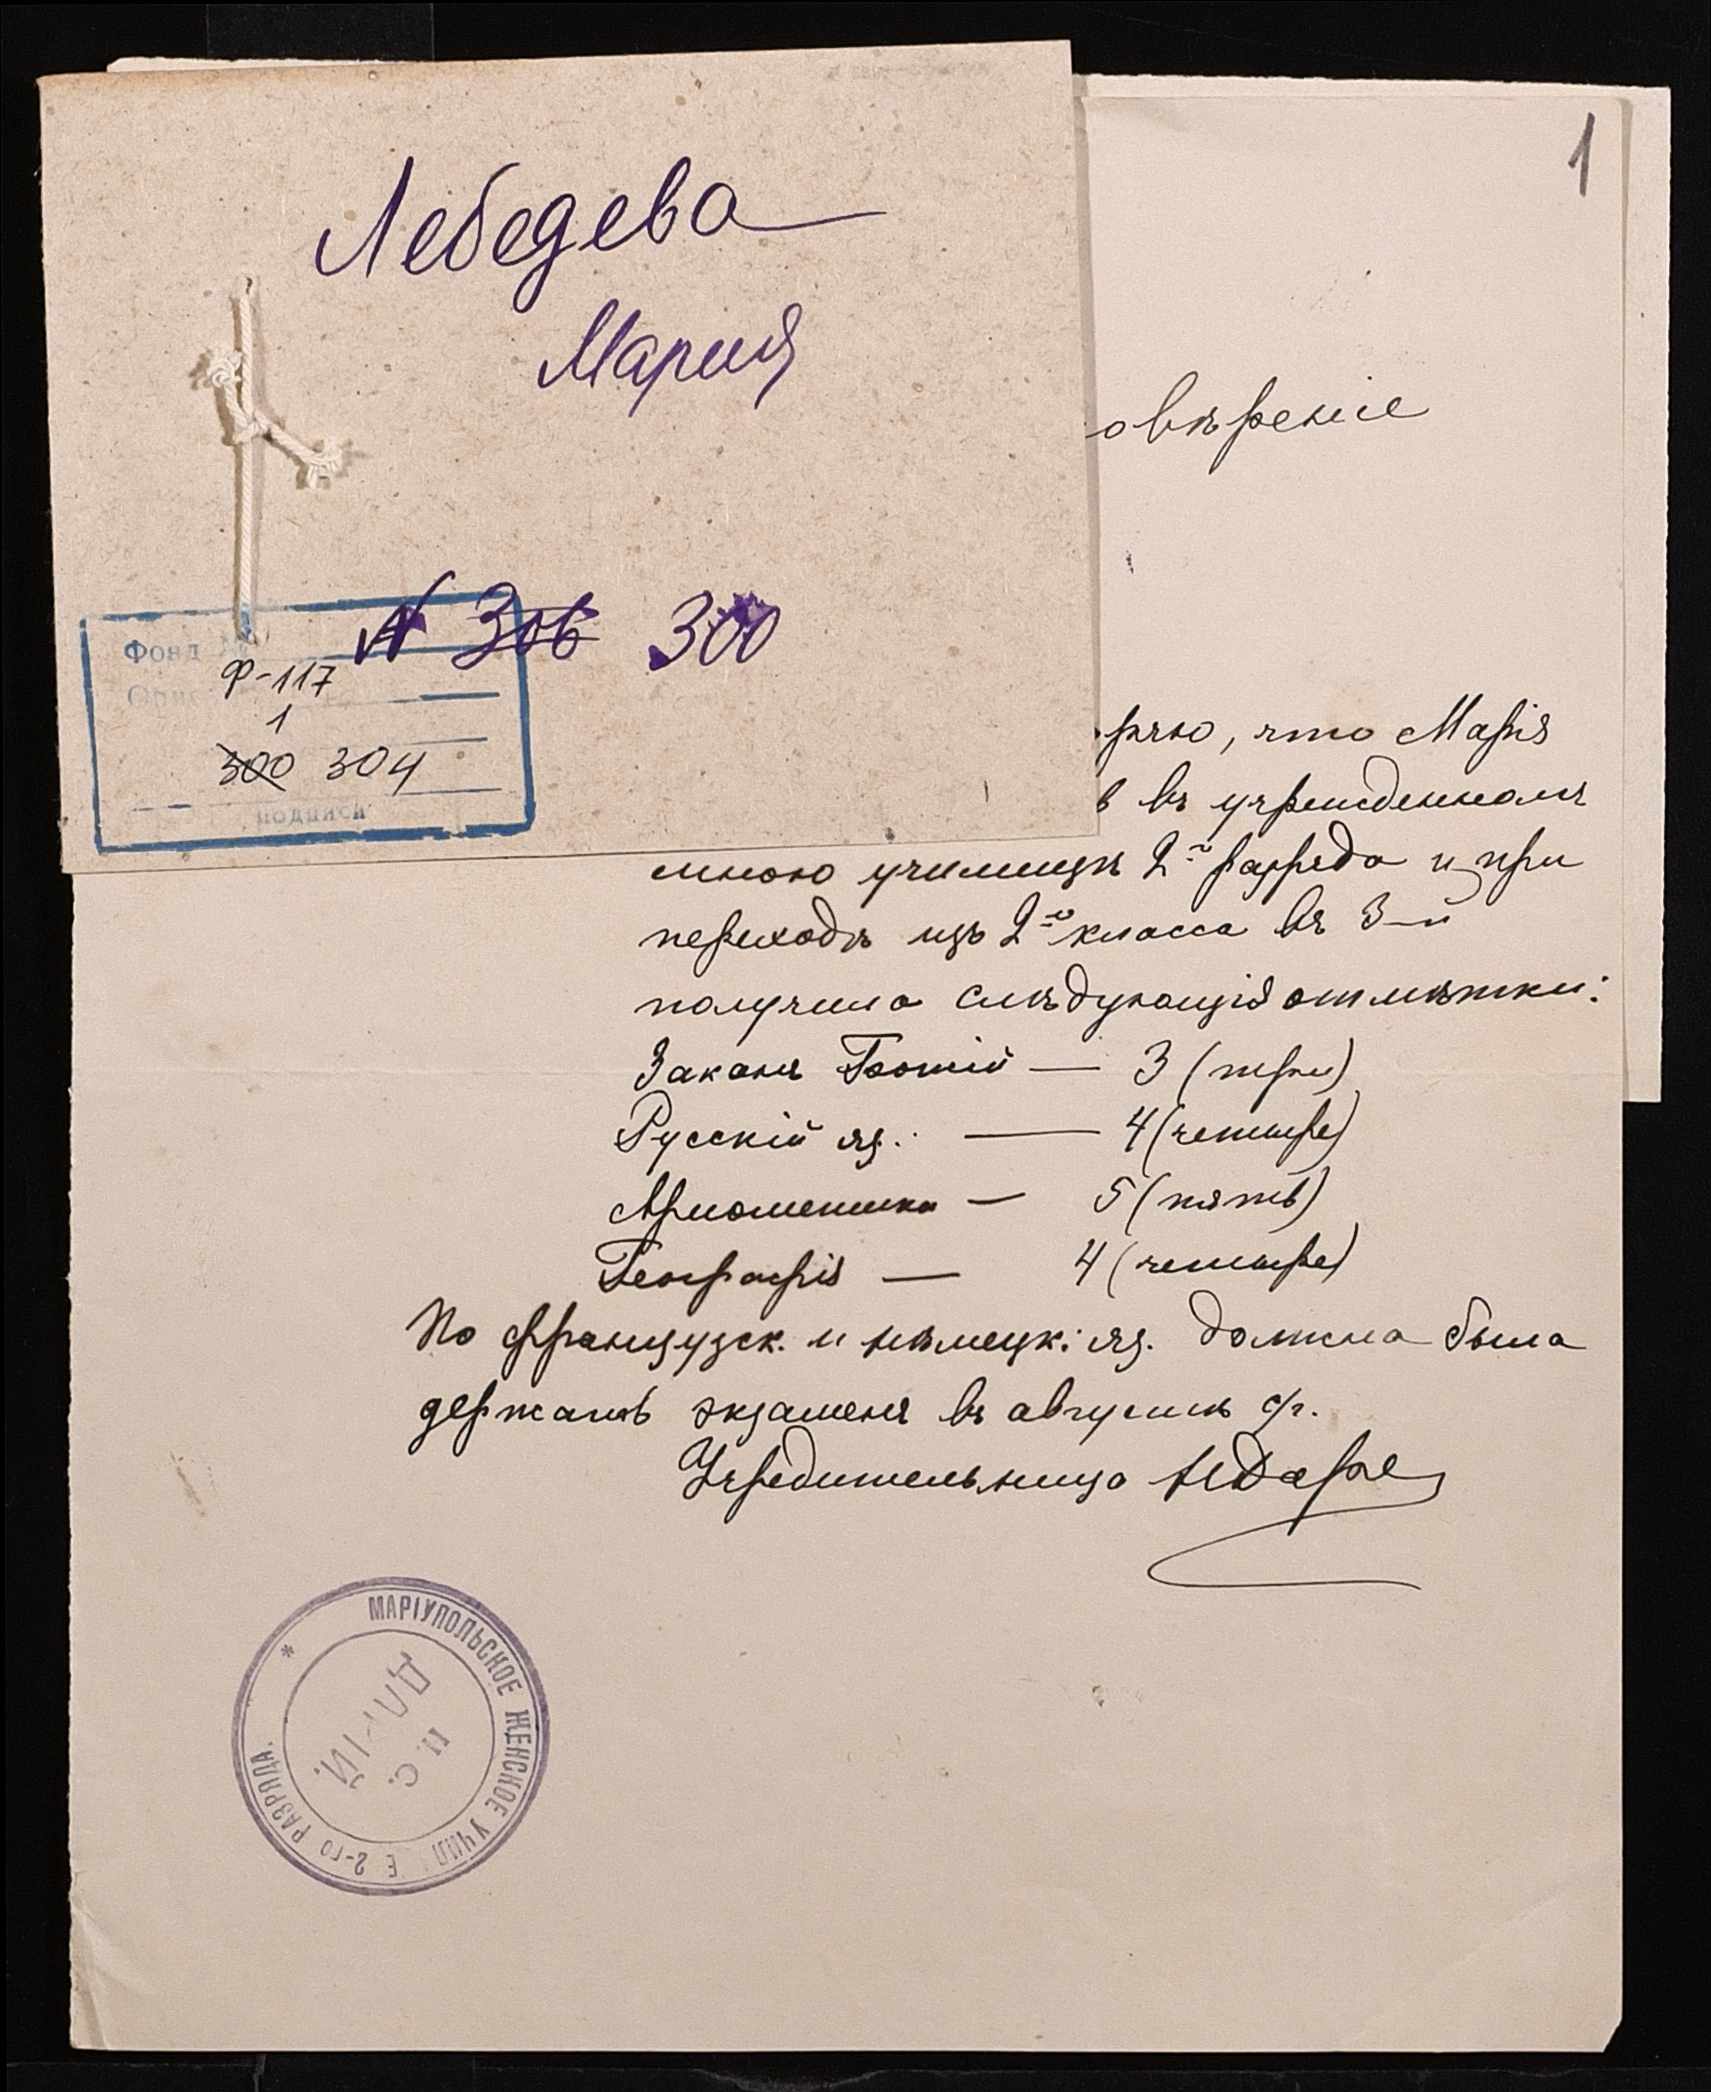 Лебедева
Мария
N 306 300
Фонд №
Ф-117
Опис
1
300 304
подписи
1
овѣреніе
ряю, что Марія
въ учрежденномъ
мною училищѣ 2-го разряда и при
переходѣ изъ 2-го класса въ 3-й
получила слѣдующія отмѣтки:
Законъ Божій — 3 (три)
Русскій яз. — 4 (четыре)
Ариѳметика — 5 (пять)
Географія — 4 (четыре)
По французск. и нѣмецк. яз. должна была
держать экзаменъ въ августѣ с/г.
Учредительница
МАРІУПОЛЬСКОЕ ЖЕНСКОЕ УЧИЛ Е 2-ГО РАЗРЯДА.